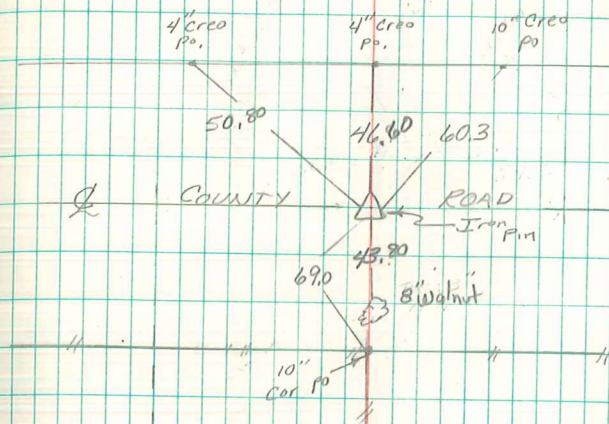 4" Creo
po.
4" Creo
po.
10" Creo
po
50.80
46.60
60.3
℄ COUNTY ROAD
Iron
pin
43.80
69.0
8" Walnut
10"
Cor po